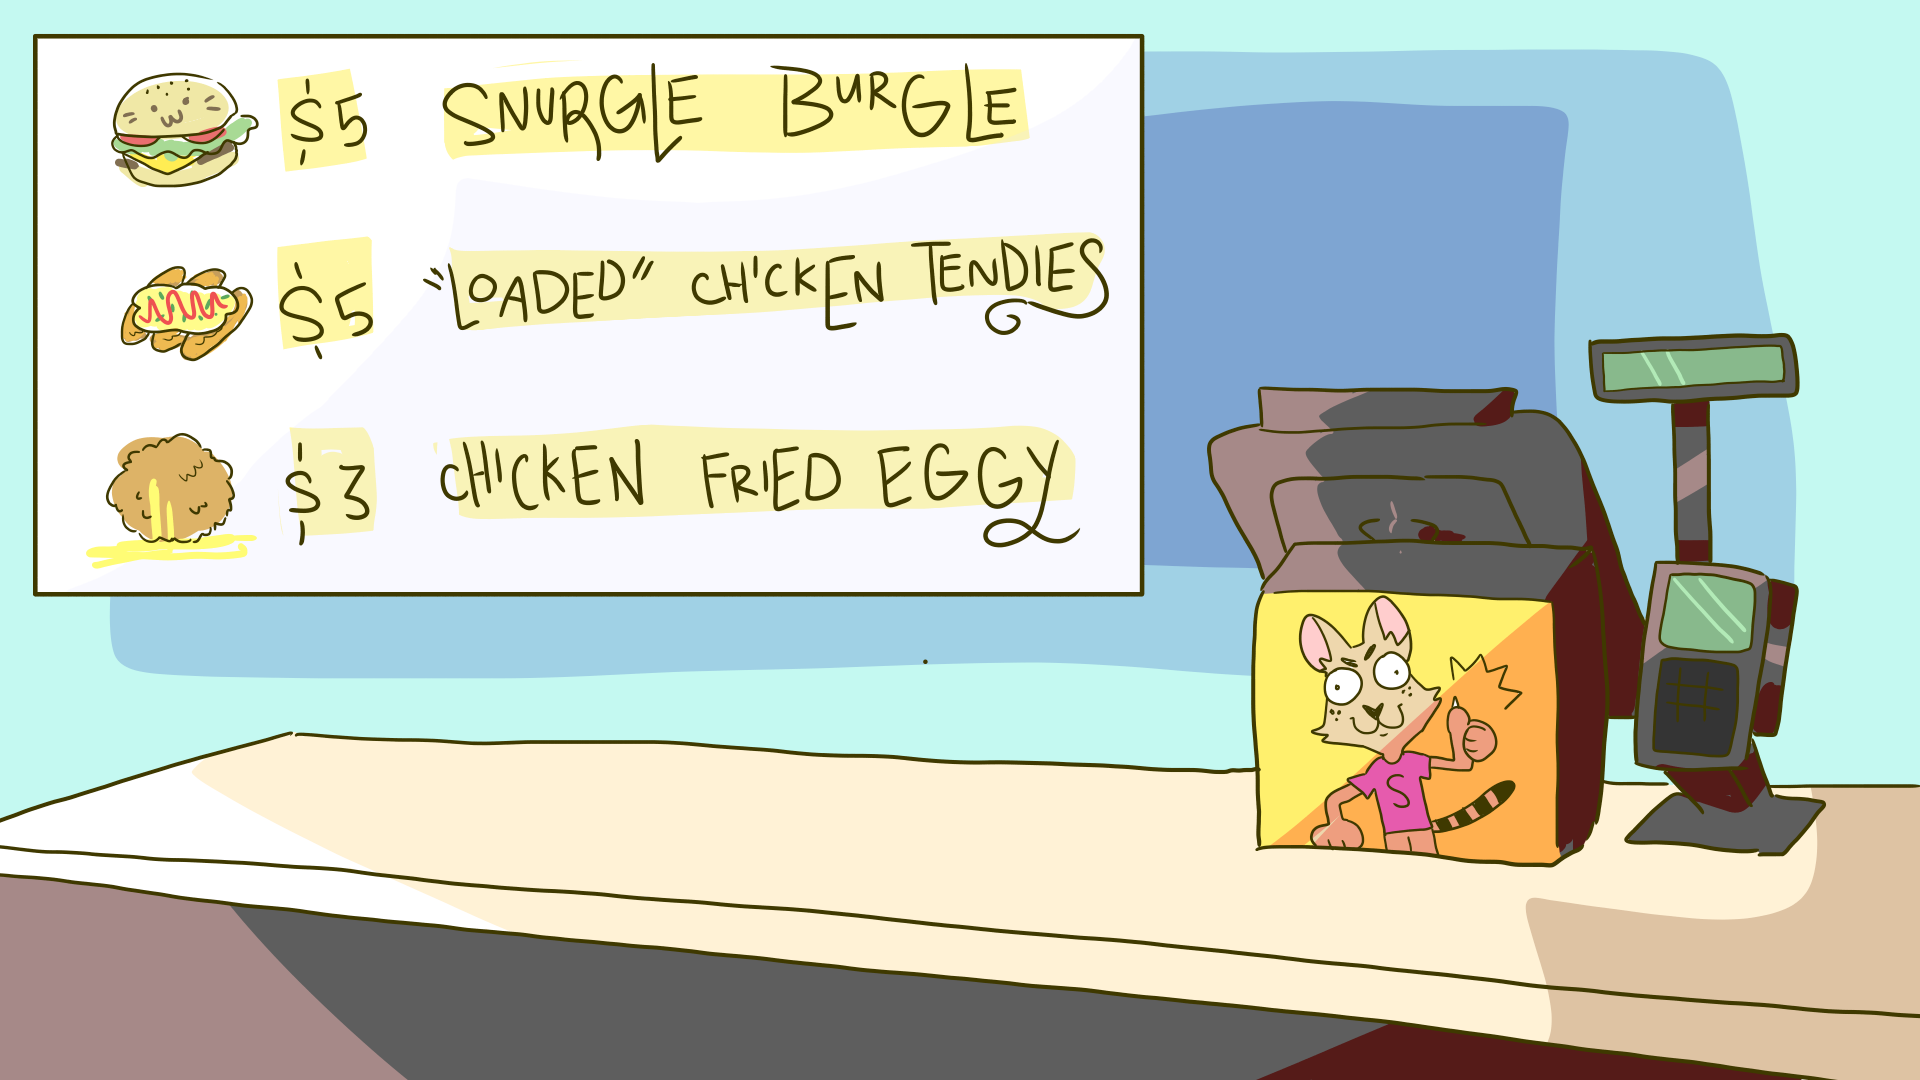 $5 SNURGLE BURGLE
$5 "LOADED" CHICKEN TENDIES
$3 CHICKEN FRIED EGGY
S